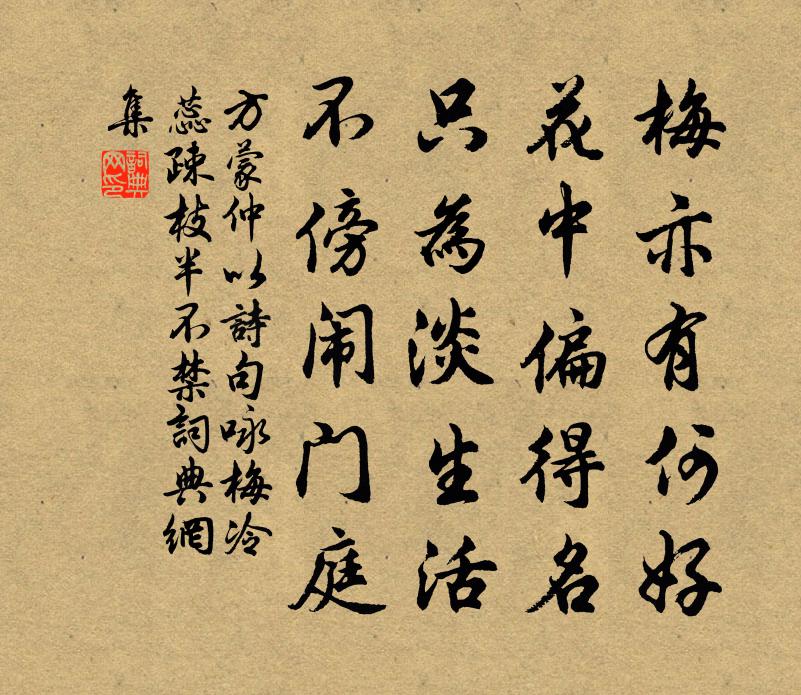 梅亦有何好
花中偏得名
只為淡生活
不傍闹门庭
方蒙仲以詩句咏梅冷
蕊疎枝半不禁詞典網
集
詞典
网印